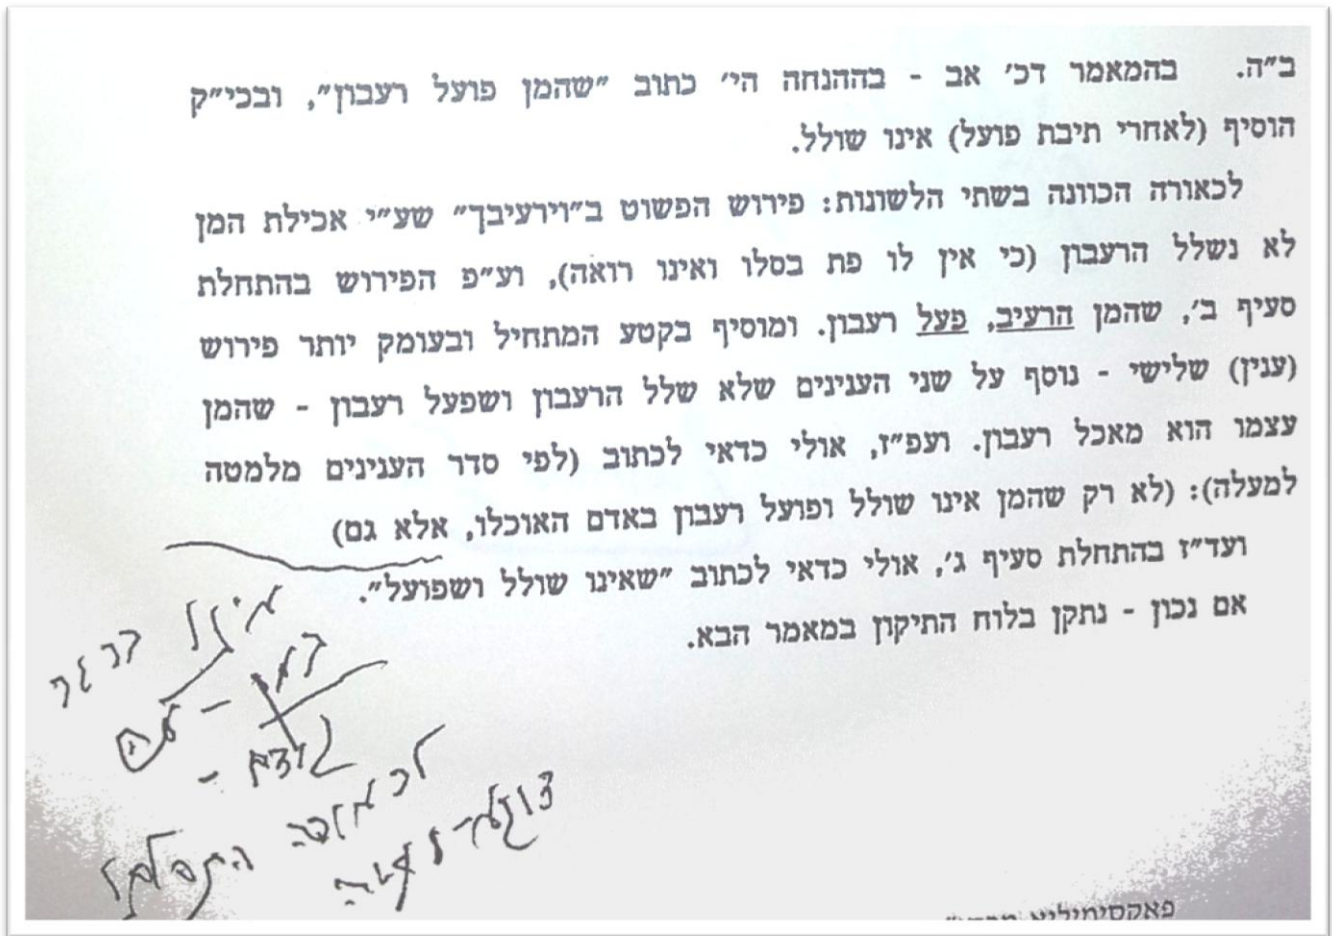 ב״ה. בהמאמר דכ׳ אב - בההנחה הי׳ כתוב ״שהמן פועל רעבון״, ובכי״ק
הוסיף (לאחרי תיבת פועל) אינו שולל.
לכאורה הכוונה בשתי הלשונות: פירוש הפשוט ב״וירעיבך״ שע״י אכילת המן
לא נשלל הרעבון (כי אין לו פת בסלו ואינו רואה), וע״פ הפירוש בהתחלת
סעיף ב׳, שהמן הרעיב, פעל רעבון. ומוסיף בקטע המתחיל ובעומק יותר פירוש
(ענין) שלישי - נוסף על שני הענינים שלא שלל הרעבון ושפעל רעבון - שהמן
עצמו הוא מאכל רעבון. ועפ״ז, אולי כדאי לכתוב (לפי סדר הענינים מלמטה
למעלה): (לא רק שהמן אינו שולל ופועל רעבון באדם האוכלו, אלא גם)
ועד״ז בהתחלת סעיף ג׳, אולי כדאי לכתוב ״שאינו שולל ושפועל״.
אם נכון - נתקן בלוח התיקון במאמר הבא.
לכאורה
פאקסימיליא